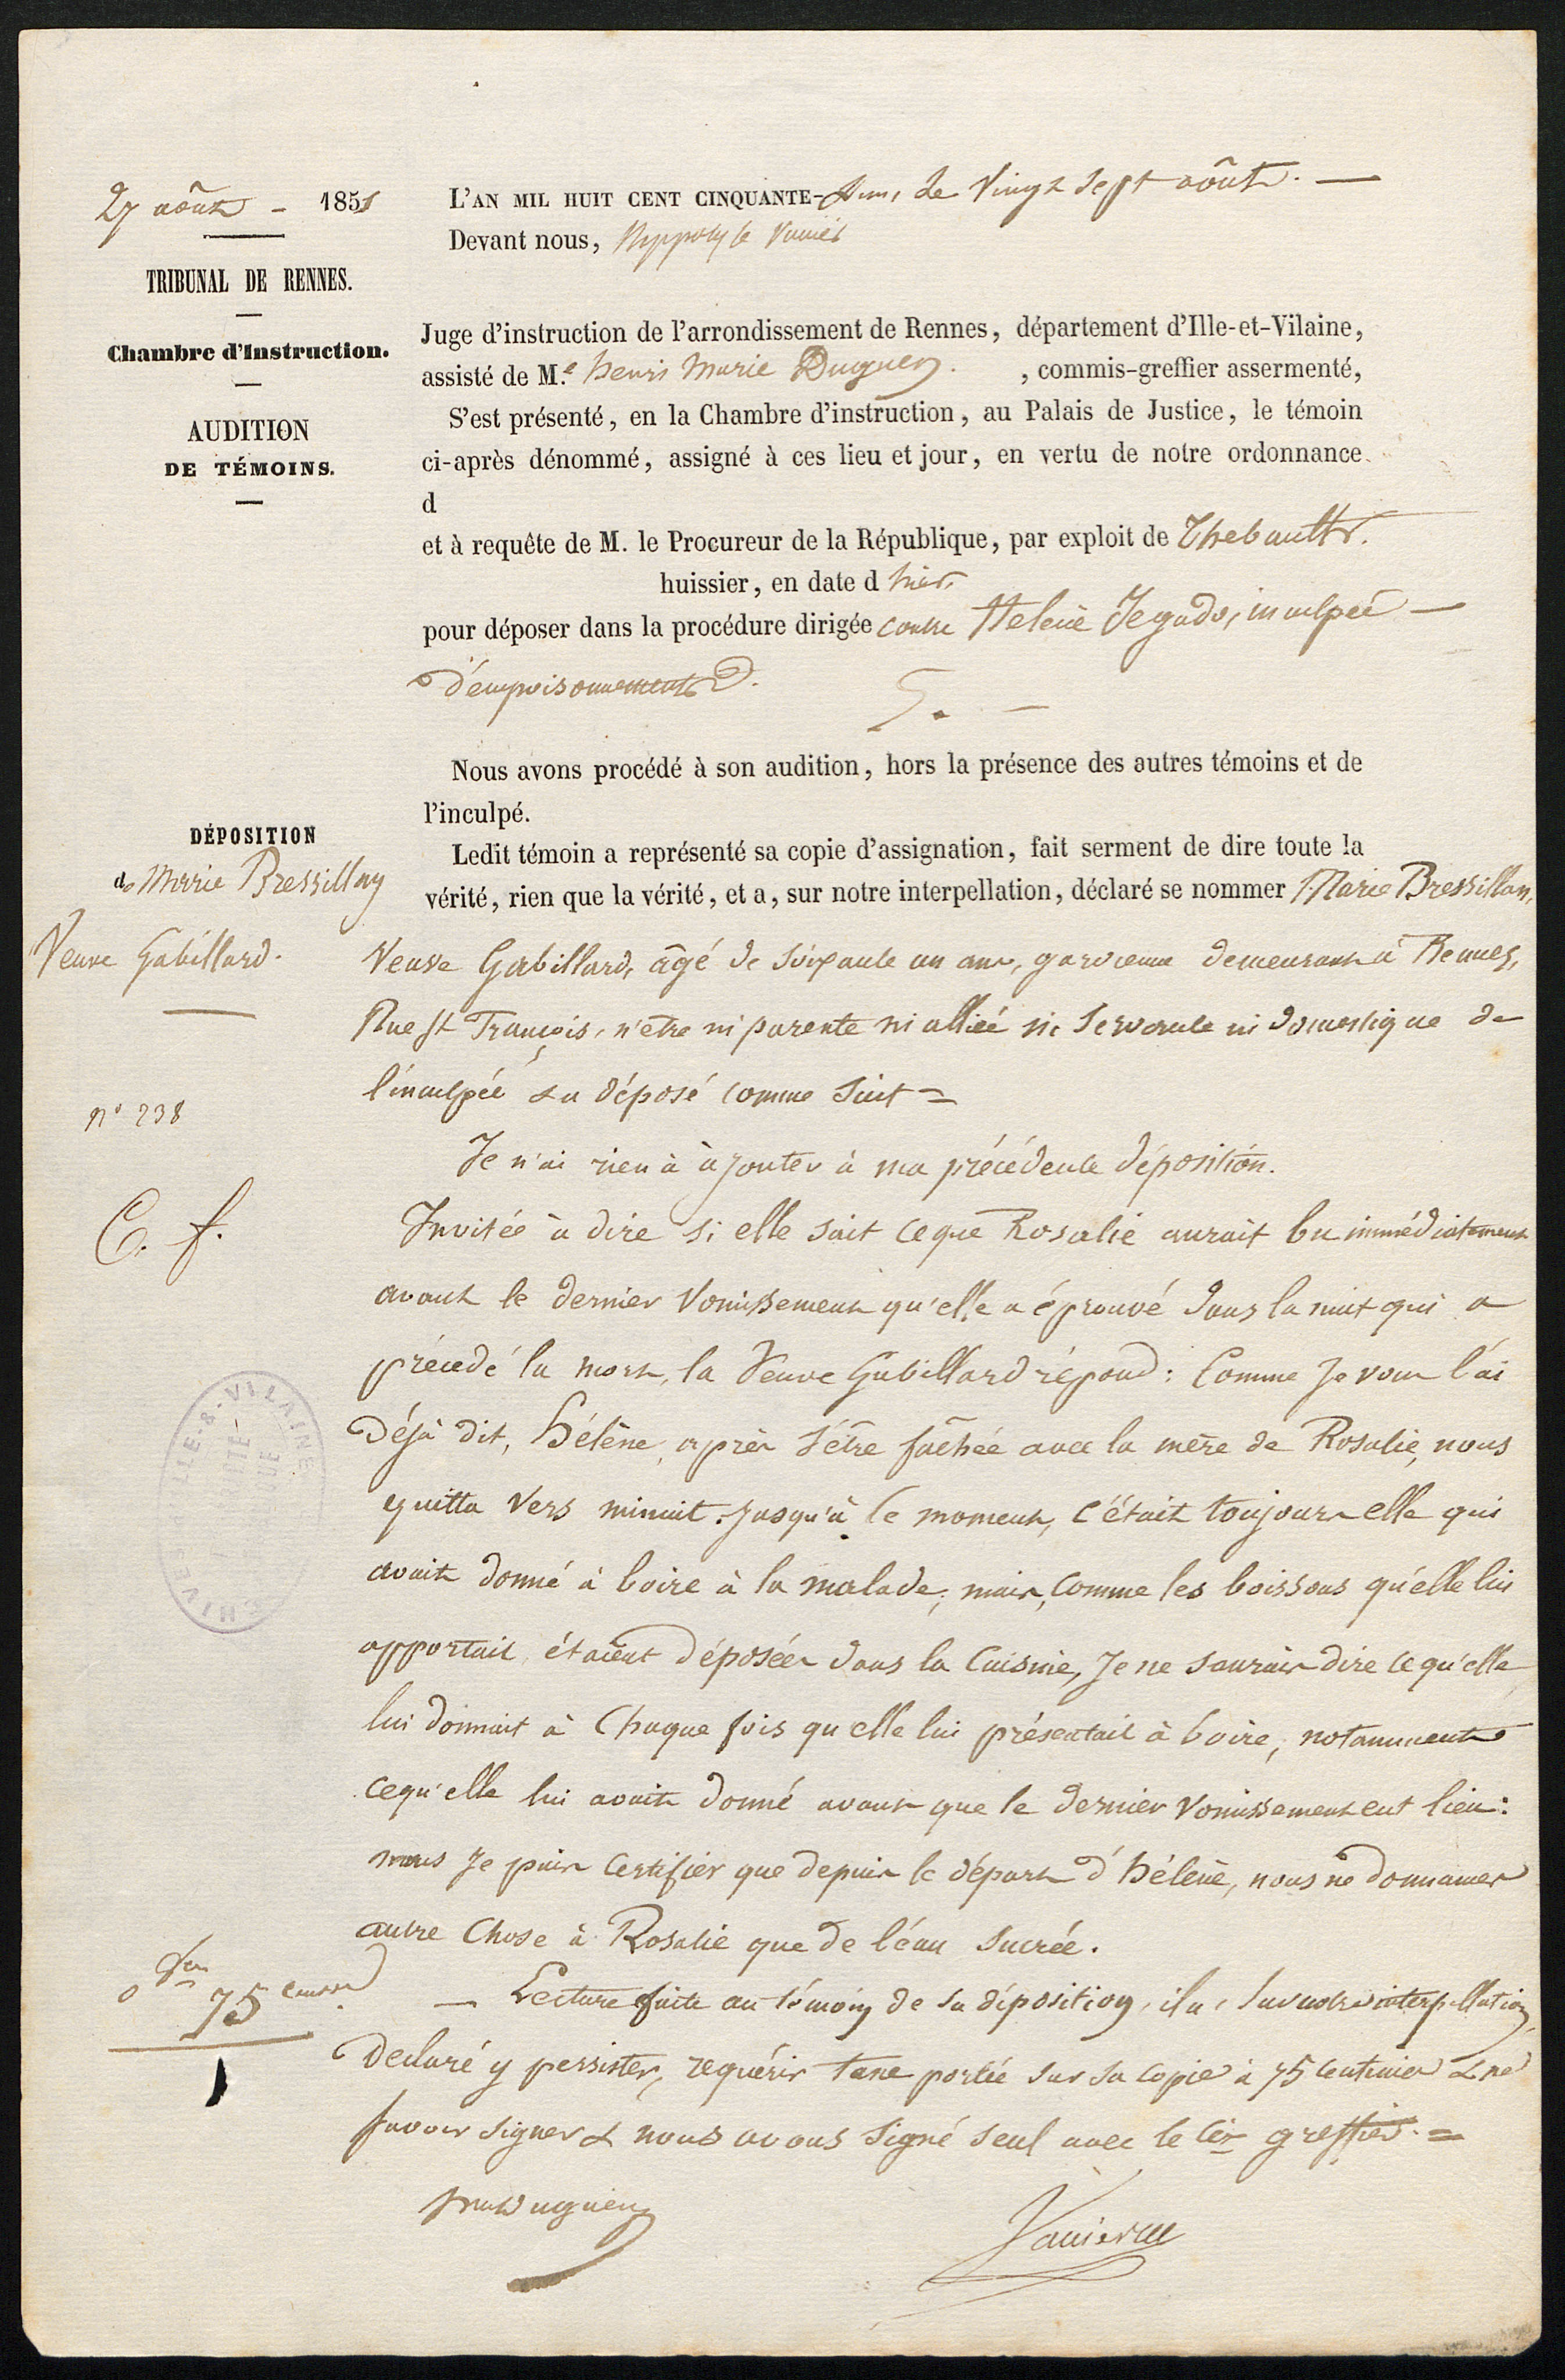 27 août - 1851
TRIBUNAL DE RENNES.
Chambre d'Instruction.
AUDITION
DE TÉMOINS.
L'AN MIL HUIT CENT CINQUANTE-un, le Vingt sept août.
Devant nous, Hyppolyte Vannier
Juge d'instruction de l'arrondissement de Rennes, département d'Ille-et-Vilaine,
assisté de M.e henri Marie Duguen. , commis-greffier assermenté,
S'est présenté, en la Chambre d'instruction, au Palais de Justice, le témoin
ci-après dénommé, assigné à ces lieu et jour, en vertu de notre ordonnance
d
et à requête de M. le Procureur de la République, par exploit de Thebault
huissier, en date d'hier,
pour déposer dans la procédure dirigée contre Helene Jegado, inculpée
d'empoisonnements.
Nous avons procédé à son audition, hors la présence des autres témoins et de
l'inculpé.
DÉPOSITION
de Marie Bressillon
Veuve Gabillard.
n° 238
C. f.
Ledit témoin a représenté sa copie d'assignation, fait serment de dire toute la
vérité, rien que la vérité, et a, sur notre interpellation, déclaré se nommer Marie Bressillon,
Veuve Gabillard, âgé de soixante un ans, gardienne demeurant à Rennes,
Rue St François, n'être ni parente ni alliée ni servante ni domestique de
l'inculpée & a déposé comme suit =
Je n'ai rien à ajouter à ma précédente déposition.
Invitée à dire si elle sait ce que Rosalie aurait bu immédiatement
avant le dernier vomissement qu'elle a éprouvé dans la nuit qui a
précédé la mort, la Veuve Gabillard répond : Comme Je vous l'ai
déjà dit, hélène, après s'être fachée avec la mère de Rosalie, nous
quitta vers minuit. Jusqu'à ce moment, c'était toujours elle qui
avait donné à boire à la malade; mais, comme les boissons qu'elle lui
apportait étaient déposées dans la cuisine, Je ne saurais dire ce qu'elle
lui donnait à chaque fois qu'elle lui présentait à boire, notamment
ce qu'elle lui avait donné avant que le dernier vomissement eut lieu :
mais Je puis certifier que depuis le départ d'hélène, nous ne donnames
autre chose à Rosalie que de l'eau sucrée.
75 cent
Lecture faite au témoin de sa déposition, il a, sur notre interpellation,
déclaré y persister, requérir taxe portée sur sa copie à 75 centimes & ne
savoir signer & nous avons signé seul avec le Cis greffier. =
Duguen
Vannier